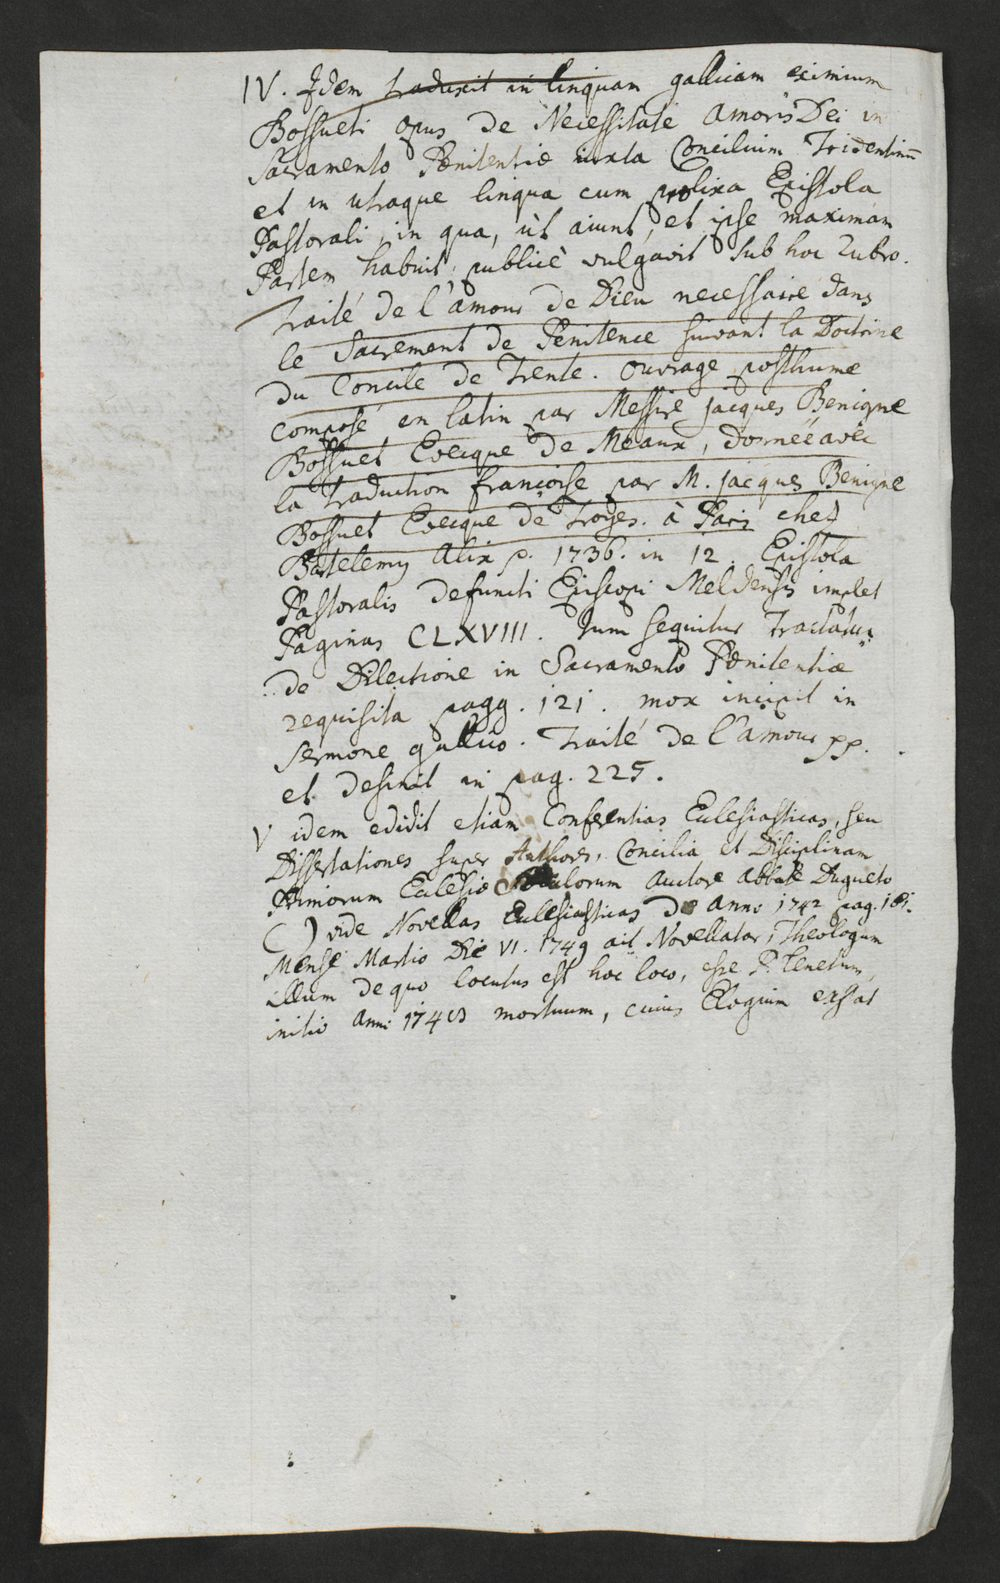 IV. Idem traduxit in linquam gallicam eximium
Bossueti opus de Necessitate Amoris Dei in
Sacramento Pænitentiæ iuxta Concilium Tridentinū
et in utraque lingua cum prolixa Epistola
Pastorali, in qua, ùt aiunt, et ipse maximam
Partem habuit, publicè vulgavit sub hoc Rubro.
Traité de l'amour de Dieu necessaire dans
le Sacrement de Penitence suivant la Doctrine
du Concile de Trente. Ouvrage posthume
composé en latin par Messire Jacques Benigne
Bossuet Evecque de Meaux, donnée avec
la traduction françoise par M. Jacques Benigne
Bossuet Evecque de Troyes. à Paris chez
Bartelemy Alix p. 1736. in 12. Epistola
Pastoralis defuncti Episcopi Meldensis implet
Paginas CLXVIII. Tum sequitur Tractatus
de Dilectione in Sacramento Pænitentiæ
requisita pagg. 121. mox incipit in
sermone gallico. Traité de l'amour pp.
et desinit in pag. 225.
V idem edidit etiam Conferentias Eclesiasticas, seu
Dissertationes super Authores, Concilia et Disciplinam
Primorum Eclesiæ Sæculorum Auctore Abbate Dugueto
( ) vide Novellas Eclesiasticas de Anno 1742 pag. 181.
Mense Martio Die VI. 1749 ait Novellator, Theologum
illum de quo locutus est hoc loco, esse P. Tenetum,
initio Anni 174 mortuum, cuius Elogium exstat